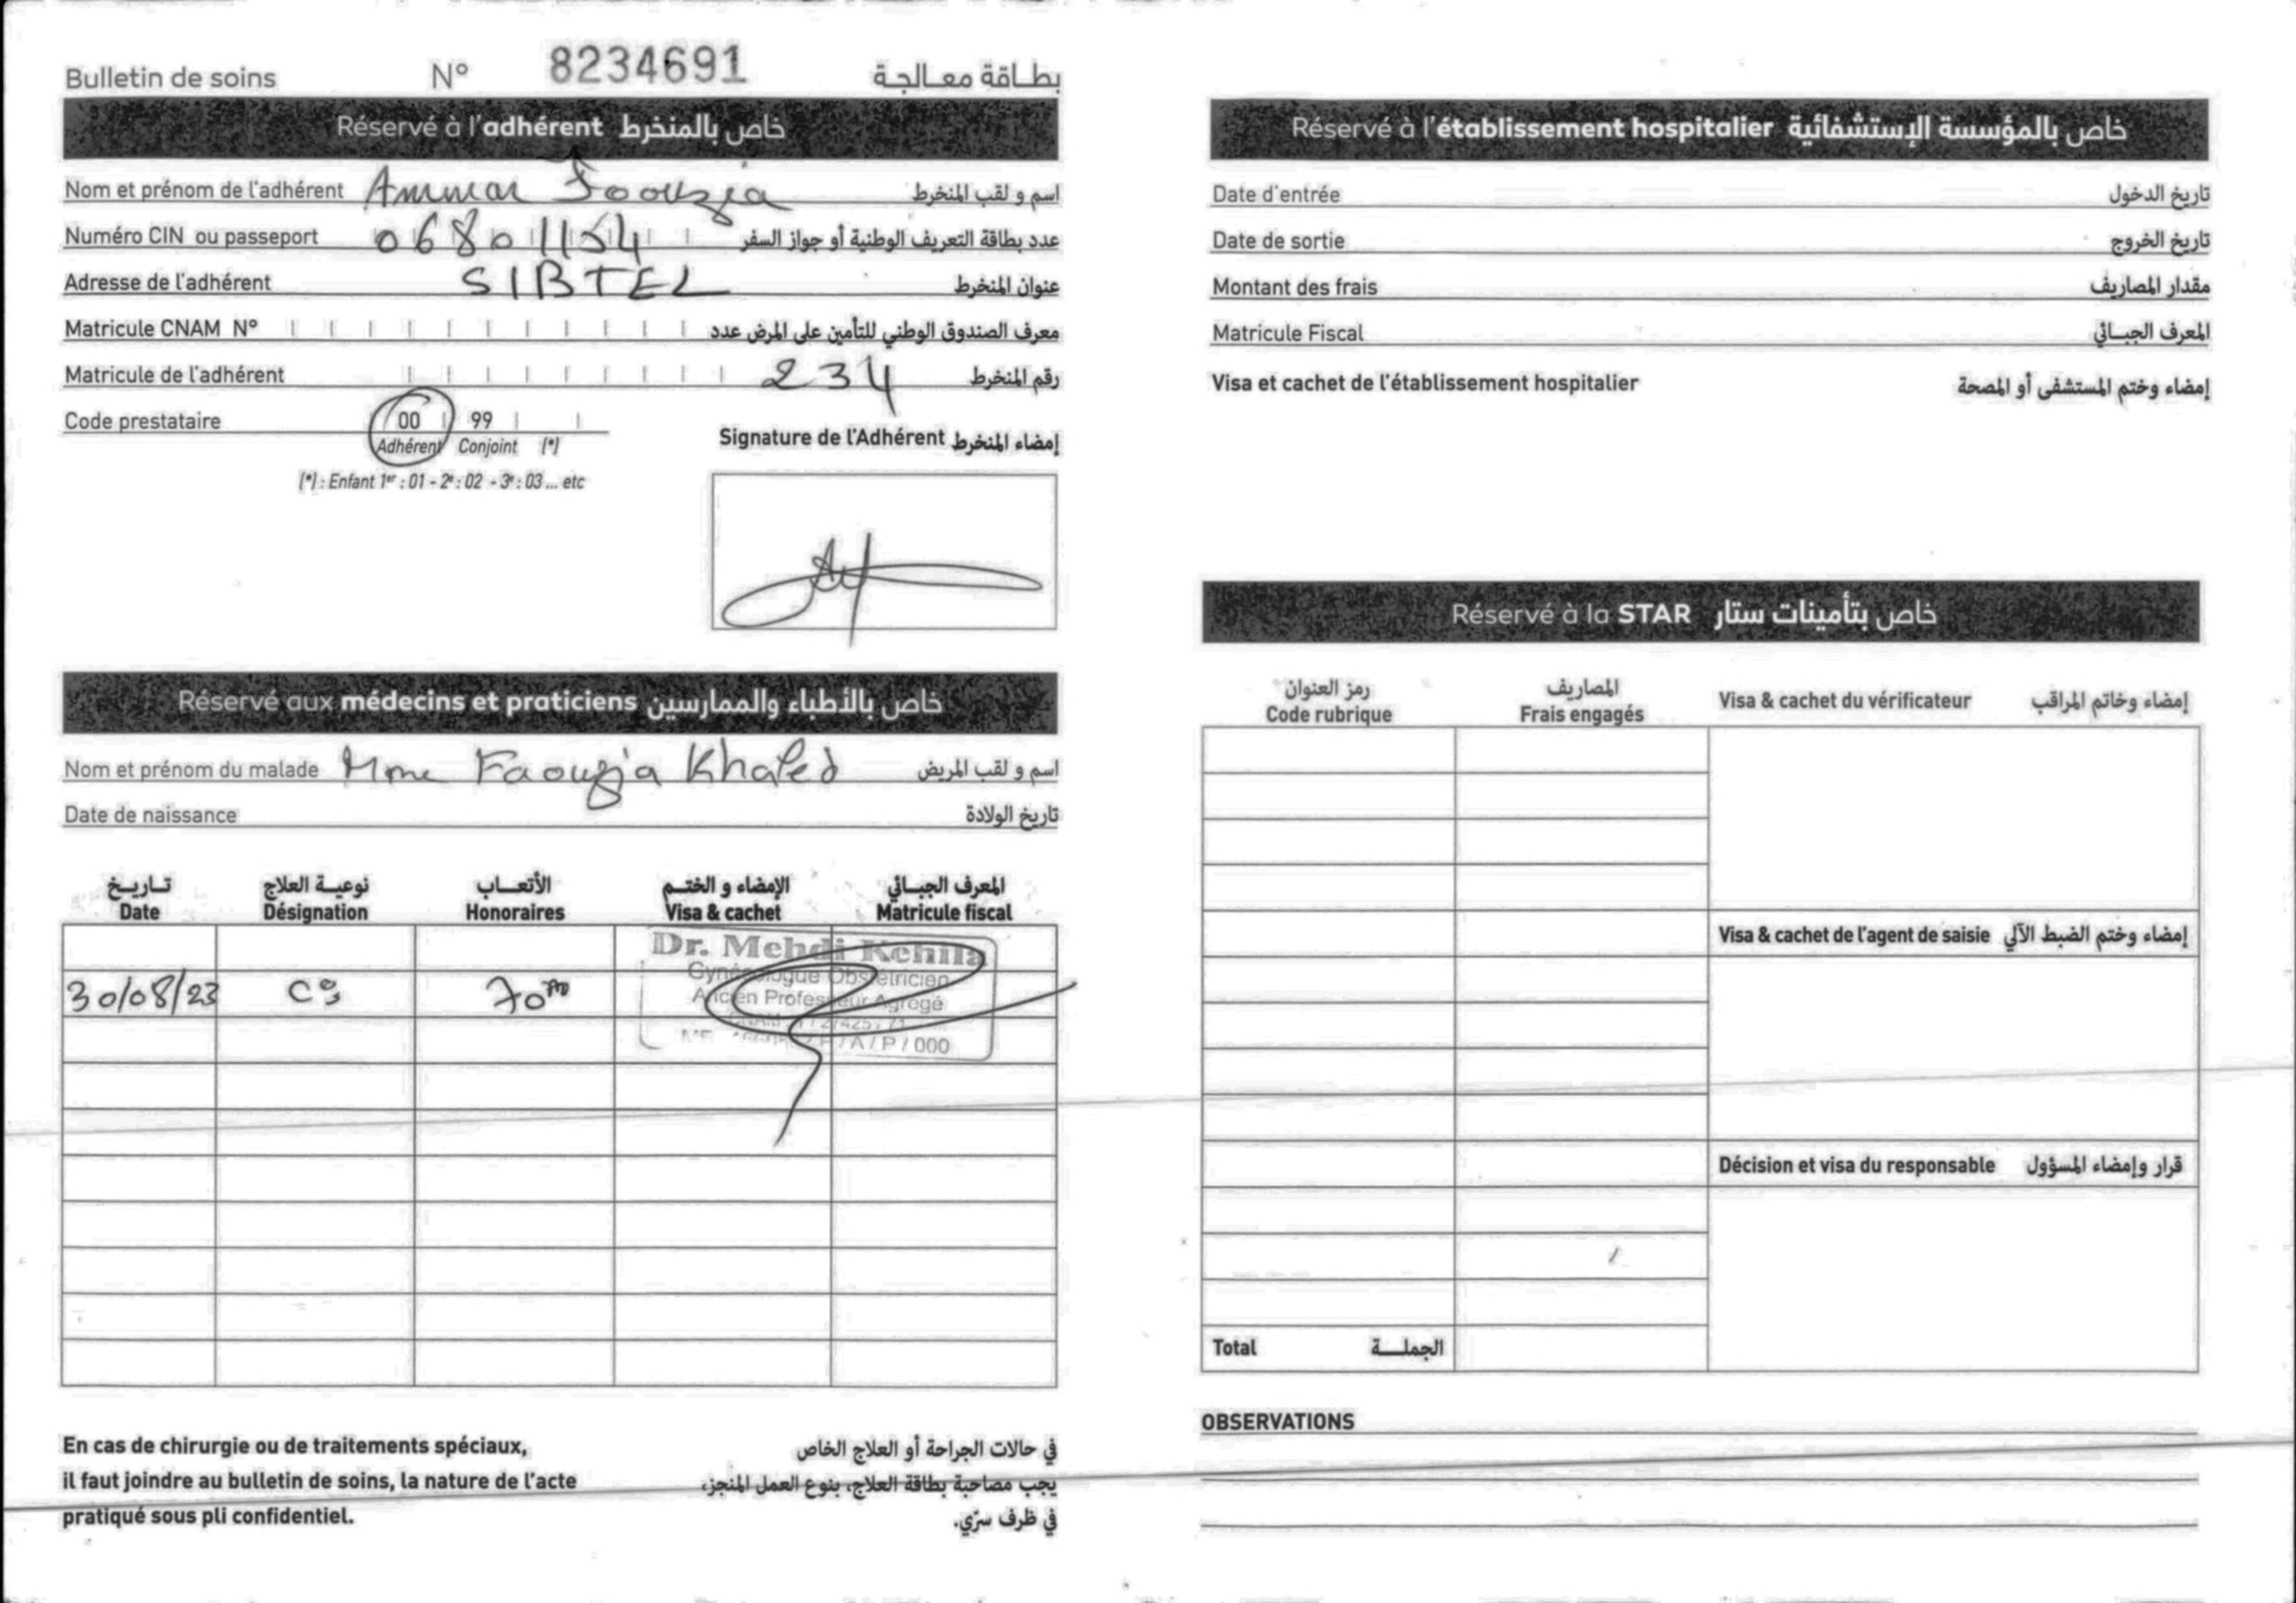 Bulletin de soins N° 8234691 بطاقة معالجة
Réservé à l'adhérent خاص بالمنخرط
Nom et prénom de l'adhérent Ammar Faouzia اسم و لقب المنخرط
Numéro CIN ou passeport 06801154 عدد بطاقة التعريف الوطنية أو جواز السفر
Adresse de l'adhérent SIBTEL عنوان المنخرط
Matricule CNAM N° معرف الصندوق الوطني للتأمين على المرض عدد
Matricule de l'adhérent 234 رقم المنخرط
Code prestataire 00 99
Adhérent Conjoint (*)
(*) : Enfant 1er : 01 - 2e : 02 - 3e : 03 ... etc
Signature de l'Adhérent إمضاء المنخرط
Réservé aux médecins et praticiens خاص بالأطباء والممارسين
Nom et prénom du malade Mme Faouzia Khaled اسم و لقب المريض
Date de naissance تاريخ الولادة
تاريخ نوعية العلاج الأتعاب الإمضاء و الختم المعرف الجبائي
Date Désignation Honoraires Visa & cachet Matricule fiscal
30/08/23 Cs 70
Dr. Mehdi Kehila
Gynécologue Obstétricien
Ancien Professeur Agrégé
/ A / P / 000
En cas de chirurgie ou de traitements spéciaux,
il faut joindre au bulletin de soins, la nature de l'acte
pratiqué sous pli confidentiel.
في حالات الجراحة أو العلاج الخاص
يجب مصاحبة بطاقة العلاج، بنوع العمل المنجز،
في ظرف سرّي.
Réservé à l'établissement hospitalier خاص بالمؤسسة الإستشفائية
Date d'entrée تاريخ الدخول
Date de sortie تاريخ الخروج
Montant des frais مقدار المصاريف
Matricule Fiscal المعرف الجبائي
Visa et cachet de l'établissement hospitalier إمضاء وختم المستشفى أو المصحة
Réservé à la STAR خاص بتأمينات ستار
رمز العنوان المصاريف
Code rubrique Frais engagés Visa & cachet du vérificateur إمضاء وخاتم المراقب
Visa & cachet de l'agent de saisie إمضاء وختم الضبط الآلي
Décision et visa du responsable قرار وإمضاء المسؤول
Total الجملة
OBSERVATIONS